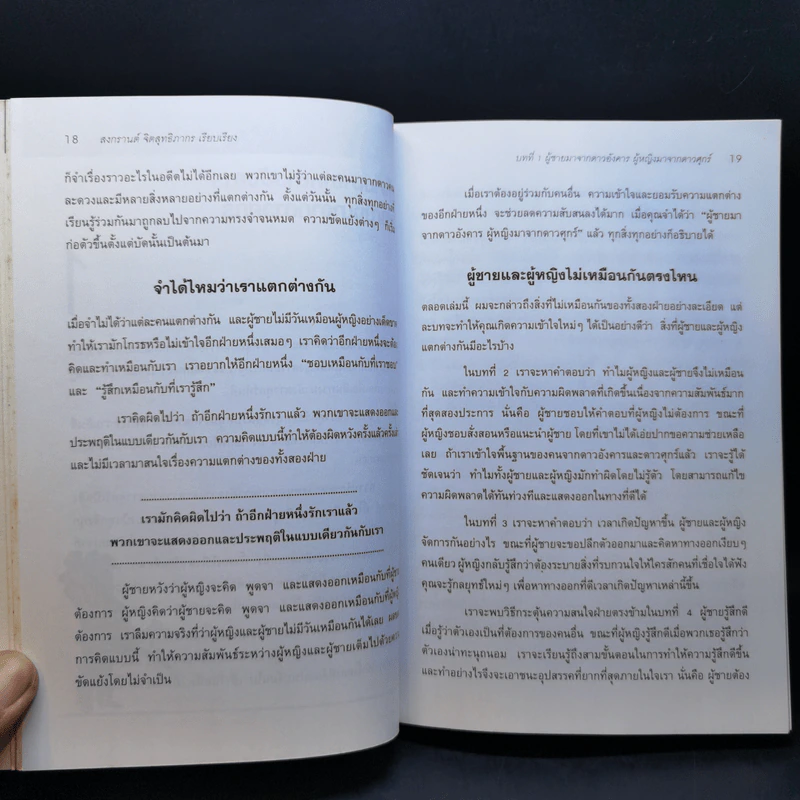 18 สงกรานต์ จิตสุทธิภากร เรียบเรียง
ก็จำเรื่องราวอะไรในอดีตไม่ได้อีกเลย พวกเขาไม่รู้ว่าแต่ละคนมาจากดาวคน
ละดวงและมีหลายสิ่งหลายอย่างที่แตกต่างกัน ตั้งแต่วันนั้น ทุกสิ่งทุกอย่างที่
เรียนรู้ร่วมกันมาถูกลบไปจากความทรงจำจนหมด ความขัดแย้งต่างๆ ก็เริ่ม
ก่อตัวขึ้นตั้งแต่บัดนั้นเป็นต้นมา
จำได้ไหมว่าเราแตกต่างกัน
เมื่อจำไม่ได้ว่าแต่ละคนแตกต่างกัน และผู้ชายไม่มีวันเหมือนผู้หญิงอย่างเด็ดขาด
ทำให้เรามักโกรธหรือไม่เข้าใจอีกฝ่ายหนึ่งเสมอๆ เราคิดว่าอีกฝ่ายหนึ่งจะต้อง
คิดและทำเหมือนกับเรา เราอยากให้อีกฝ่ายหนึ่ง “ชอบเหมือนกับที่เราชอบ”
และ “รู้สึกเหมือนกับที่เรารู้สึก”
เราคิดผิดไปว่า ถ้าอีกฝ่ายหนึ่งรักเราแล้ว พวกเขาจะแสดงออกและ
ประพฤติในแบบเดียวกันกับเรา ความคิดแบบนี้ทำให้ต้องผิดหวังครั้งแล้วครั้งเล่า
และไม่มีเวลามาสนใจเรื่องความแตกต่างของทั้งสองฝ่าย
เรามักคิดผิดไปว่า ถ้าอีกฝ่ายหนึ่งรักเราแล้ว
พวกเขาจะแสดงออกและประพฤติในแบบเดียวกันกับเรา
ผู้ชายหวังว่าผู้หญิงจะคิด พูดจา และแสดงออกเหมือนกับที่ผู้ชาย
ต้องการ ผู้หญิงคิดว่าผู้ชายจะคิด พูดจา และแสดงออกเหมือนกับที่ผู้หญิง
ต้องการ เราลืมความจริงที่ว่าผู้หญิงและผู้ชายไม่มีวันเหมือนกันได้เลย
การคิดแบบนี้ ทำให้ความสัมพันธ์ระหว่างผู้หญิงและผู้ชายเต็มไปด้วยความ
ขัดแย้งโดยไม่จำเป็น
บทที่ 1 ผู้ชายมาจากดาวอังคาร ผู้หญิงมาจากดาวศุกร์ 19
เมื่อเราต้องอยู่ร่วมกับคนอื่น ความเข้าใจและยอมรับความแตกต่าง
ของอีกฝ่ายหนึ่ง จะช่วยลดความสับสนลงได้มาก เมื่อคุณจำได้ว่า “ผู้ชายมา
จากดาวอังคาร ผู้หญิงมาจากดาวศุกร์” แล้ว ทุกสิ่งทุกอย่างก็อธิบายได้
ผู้ชายและผู้หญิงไม่เหมือนกันตรงไหน
ตลอดเล่มนี้ ผมจะกล่าวถึงสิ่งที่ไม่เหมือนกันของทั้งสองฝ่ายอย่างละเอียด แต่
ละบทจะทำให้คุณเกิดความเข้าใจใหม่ๆ ได้เป็นอย่างดีว่า สิ่งที่ผู้ชายและผู้หญิง
แตกต่างกันมีอะไรบ้าง
ในบทที่ 2 เราจะหาคำตอบว่า ทำไมผู้หญิงและผู้ชายจึงไม่เหมือน
กัน และทำความเข้าใจกับความผิดพลาดที่เกิดขึ้นเนื่องจากความสัมพันธ์มาก
ที่สุดสองประการ นั่นคือ ผู้ชายชอบให้คำตอบที่ผู้หญิงไม่ต้องการ ขณะที่
ผู้หญิงชอบสั่งสอนหรือแนะนำผู้ชาย โดยที่เขาไม่ได้เอ่ยปากขอความช่วยเหลือ
เลย ถ้าเราเข้าใจพื้นฐานของคนจากดาวอังคารและดาวศุกร์แล้ว เราจะรู้ได้
ชัดเจนว่า ทำไมทั้งผู้ชายและผู้หญิงมักทำผิดโดยไม่รู้ตัว โดยสามารถแก้ไข
ความผิดพลาดได้ทันท่วงทีและแสดงออกในทางที่ดีได้
ในบทที่ 3 เราจะหาคำตอบว่า เวลาเกิดปัญหาขึ้น ผู้ชายและผู้หญิง
จัดการกันอย่างไร ขณะที่ผู้ชายจะขอปลีกตัวออกมาและคิดหาทางออกเงียบๆ
คนเดียว ผู้หญิงกลับรู้สึกว่าจะต้องระบายสิ่งที่รบกวนใจให้ใครสักคนที่เชื่อใจได้ฟัง
คุณจะรู้กลยุทธ์ใหม่ๆ เพื่อหาทางออกที่ดีเวลาเกิดปัญหาเหล่านี้ขึ้น
เราจะพบวิธีกระตุ้นความสนใจฝ่ายตรงข้ามในบทที่ 4 ผู้ชายรู้สึกดี
เมื่อรู้ว่าตัวเองเป็นที่ต้องการของคนอื่น ขณะที่ผู้หญิงรู้สึกดีเมื่อพวกเธอรู้สึกว่า
ตัวเองน่าทะนุถนอม เราจะเรียนรู้ถึงสามขั้นตอนในการทำให้ความรู้สึกดีขึ้น
และทำอย่างไรจึงจะเอาชนะอุปสรรคที่ยากที่สุดภายในใจเรา นั่นคือ ผู้ชายต้อง